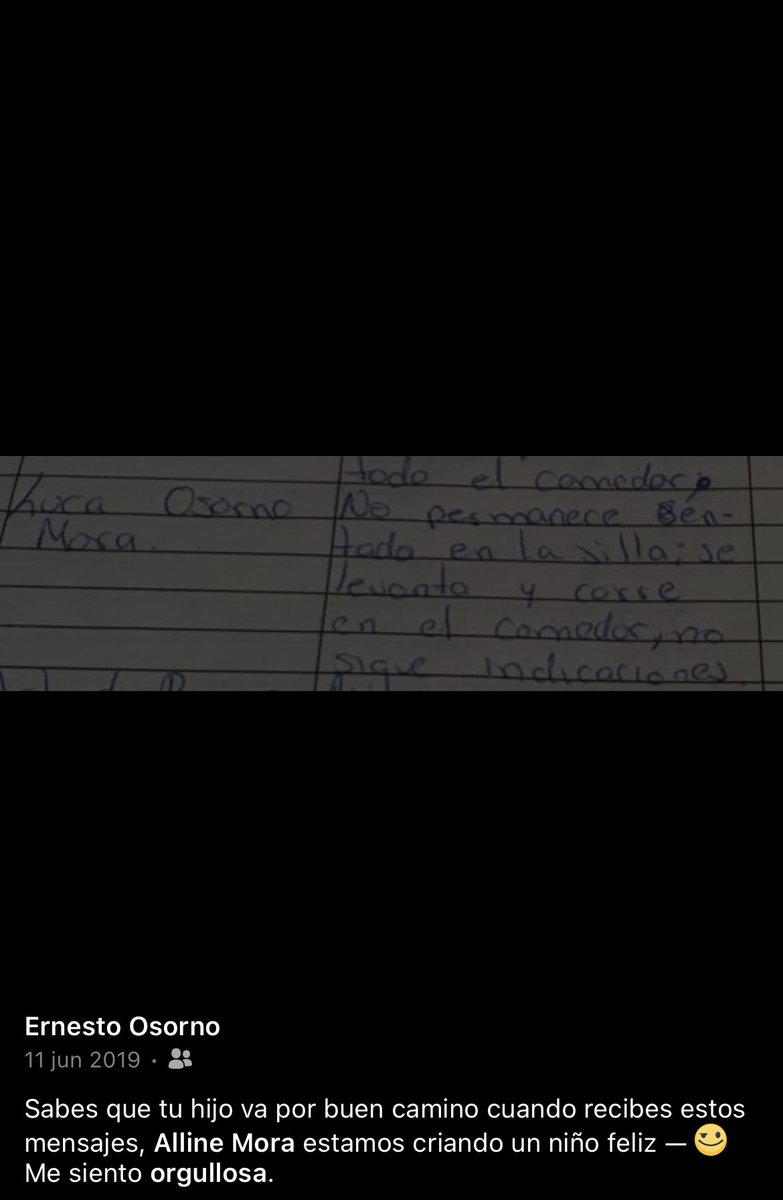 todo el comedor,
Luca Osorno
No permanece sen-
Mora.
tado en la silla; se
levanta y corre
en el comedor, no
sigue indicaciones
Ernesto Osorno
11 jun 2019 ·
Sabes que tu hijo va por buen camino cuando recibes estos
mensajes, Alline Mora estamos criando un niño feliz — 😉
Me siento orgullosa.